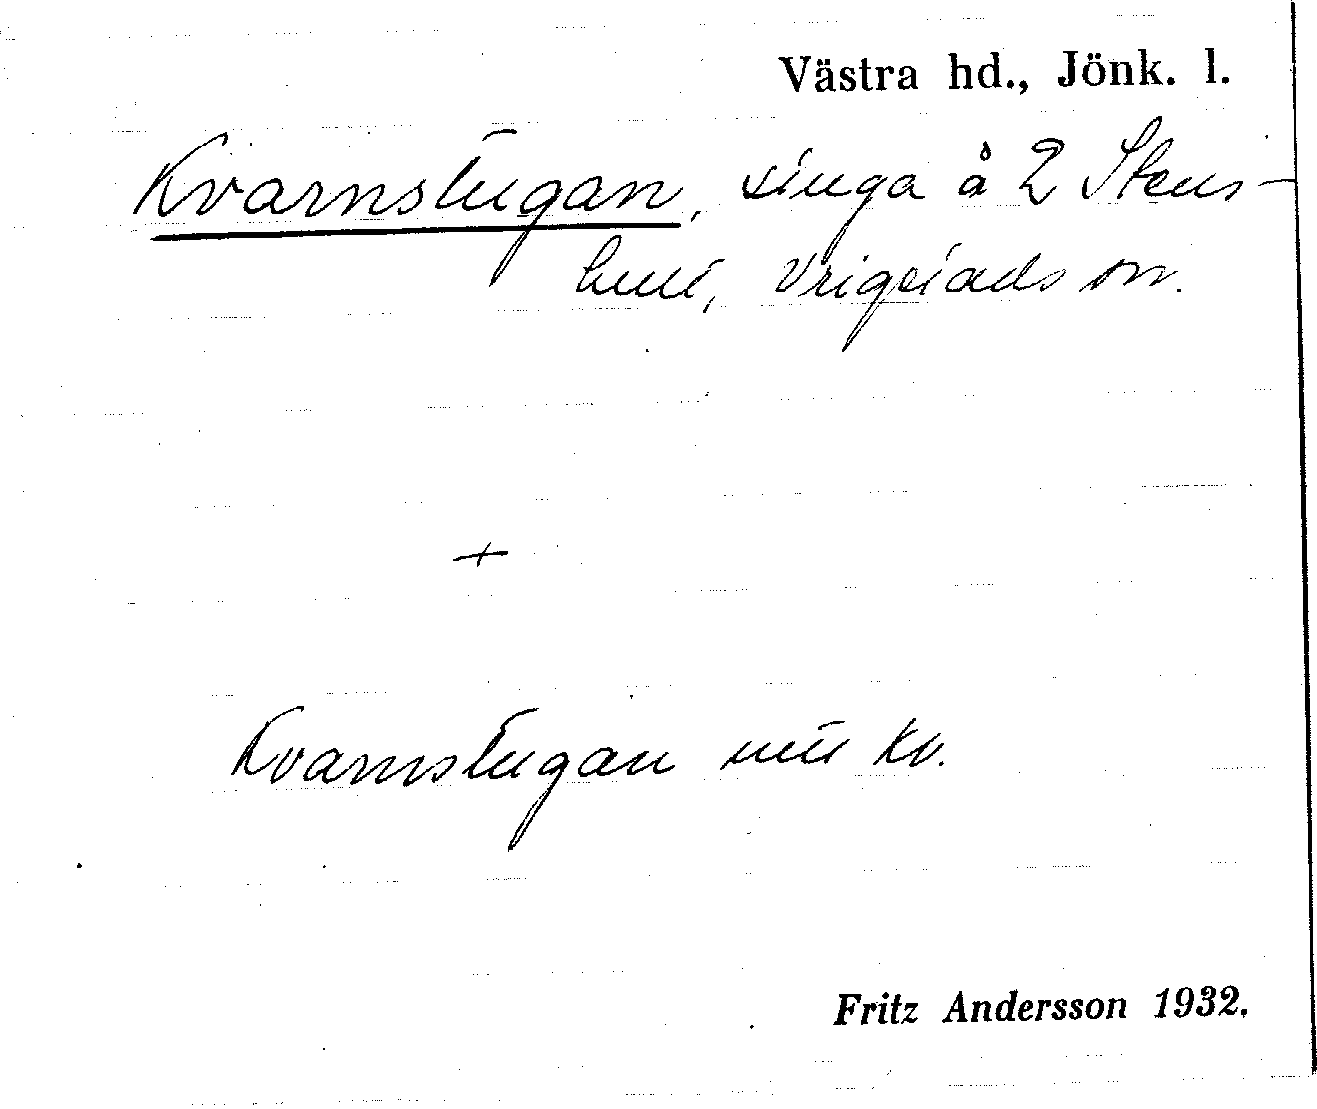 Västra hd., Jönk. l.
Kvarnstugan, stuga å 2 Stens-
hult, Vrigstads sn.
+
Kvarnstugan
kv.
Fritz Andersson 1932.